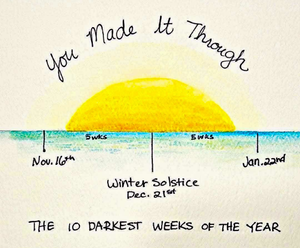 You Made It Through
5wks 5wks
Nov. 16th Jan. 22nd
Winter Solstice
Dec. 21st
THE 10 DARKEST WEEKS OF THE YEAR